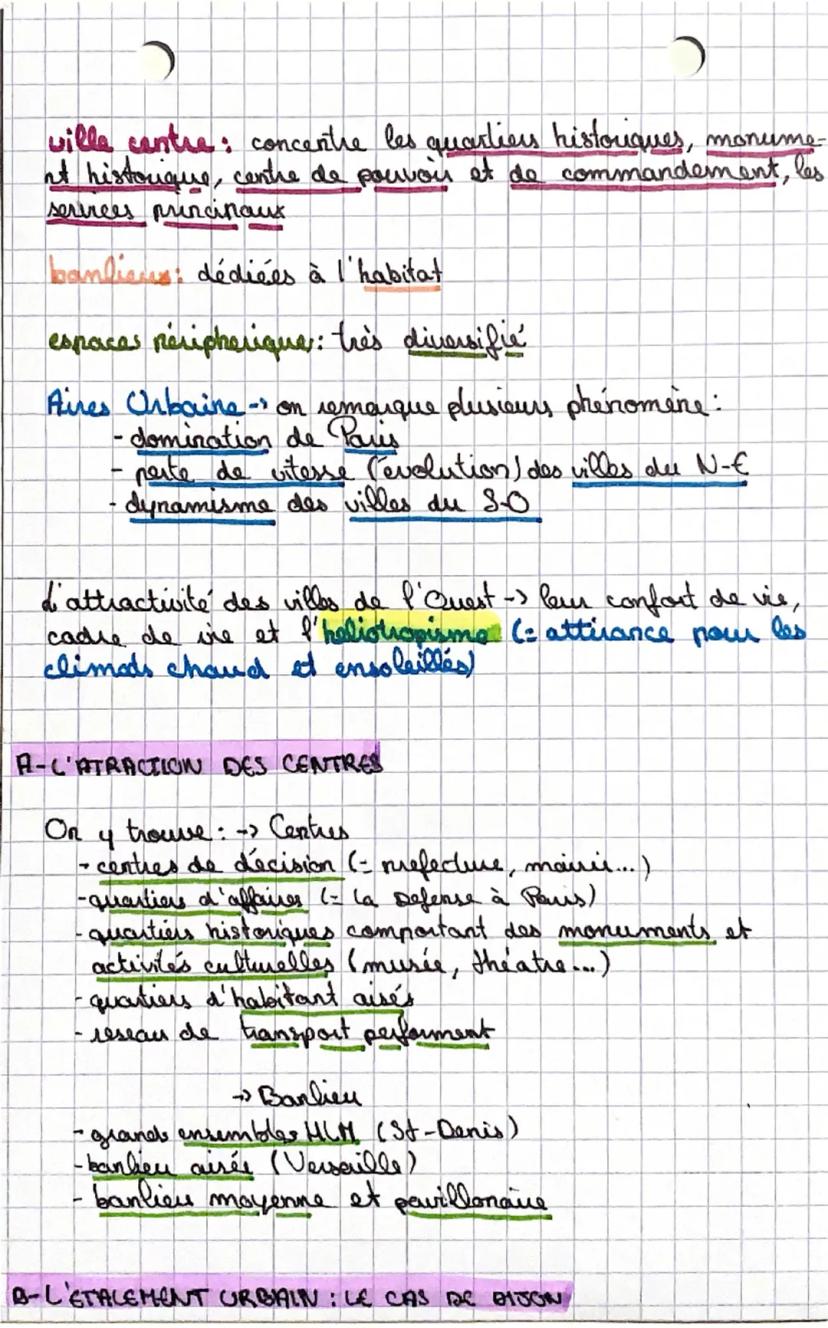 ville centre : concentre les quartiers historiques, monume-
nt historique, centre de pouvoir et de commandement, les
services principaux
banlieus : dédiées à l'habitat
espaces péripherique : très diversifié
Aires Urbaine -> on remarque plusieurs phénomène :
- domination de Paris
- perte de vitesse (évolution) des villes du N-E
- dynamisme des villes du S-O
L'attractivité des villes de l'Ouest -> leur confort de vie,
cadre de vie et l'heliotropisme (= attirance pour les
climats chaud et ensoleillés)
A-L'ATRACTION DES CENTRES
On y trouve : -> Centres
- centres de décision (= prefecture, mairie...)
- quartiers d'affaires (= la Defense à Paris)
- quartiers historiques comportant des monuments et
activités culturelles (musée, théatre...)
- quartiers d'habitant aisés
- reseau de transport performent
-> Banlieu
- grands ensembles HLM (St-Denis)
- banlieu aisée (Versaille)
- banlieu moyenne et pavillonaire
B-L'ETALEMENT URBAIN : LE CAS DE DIJON